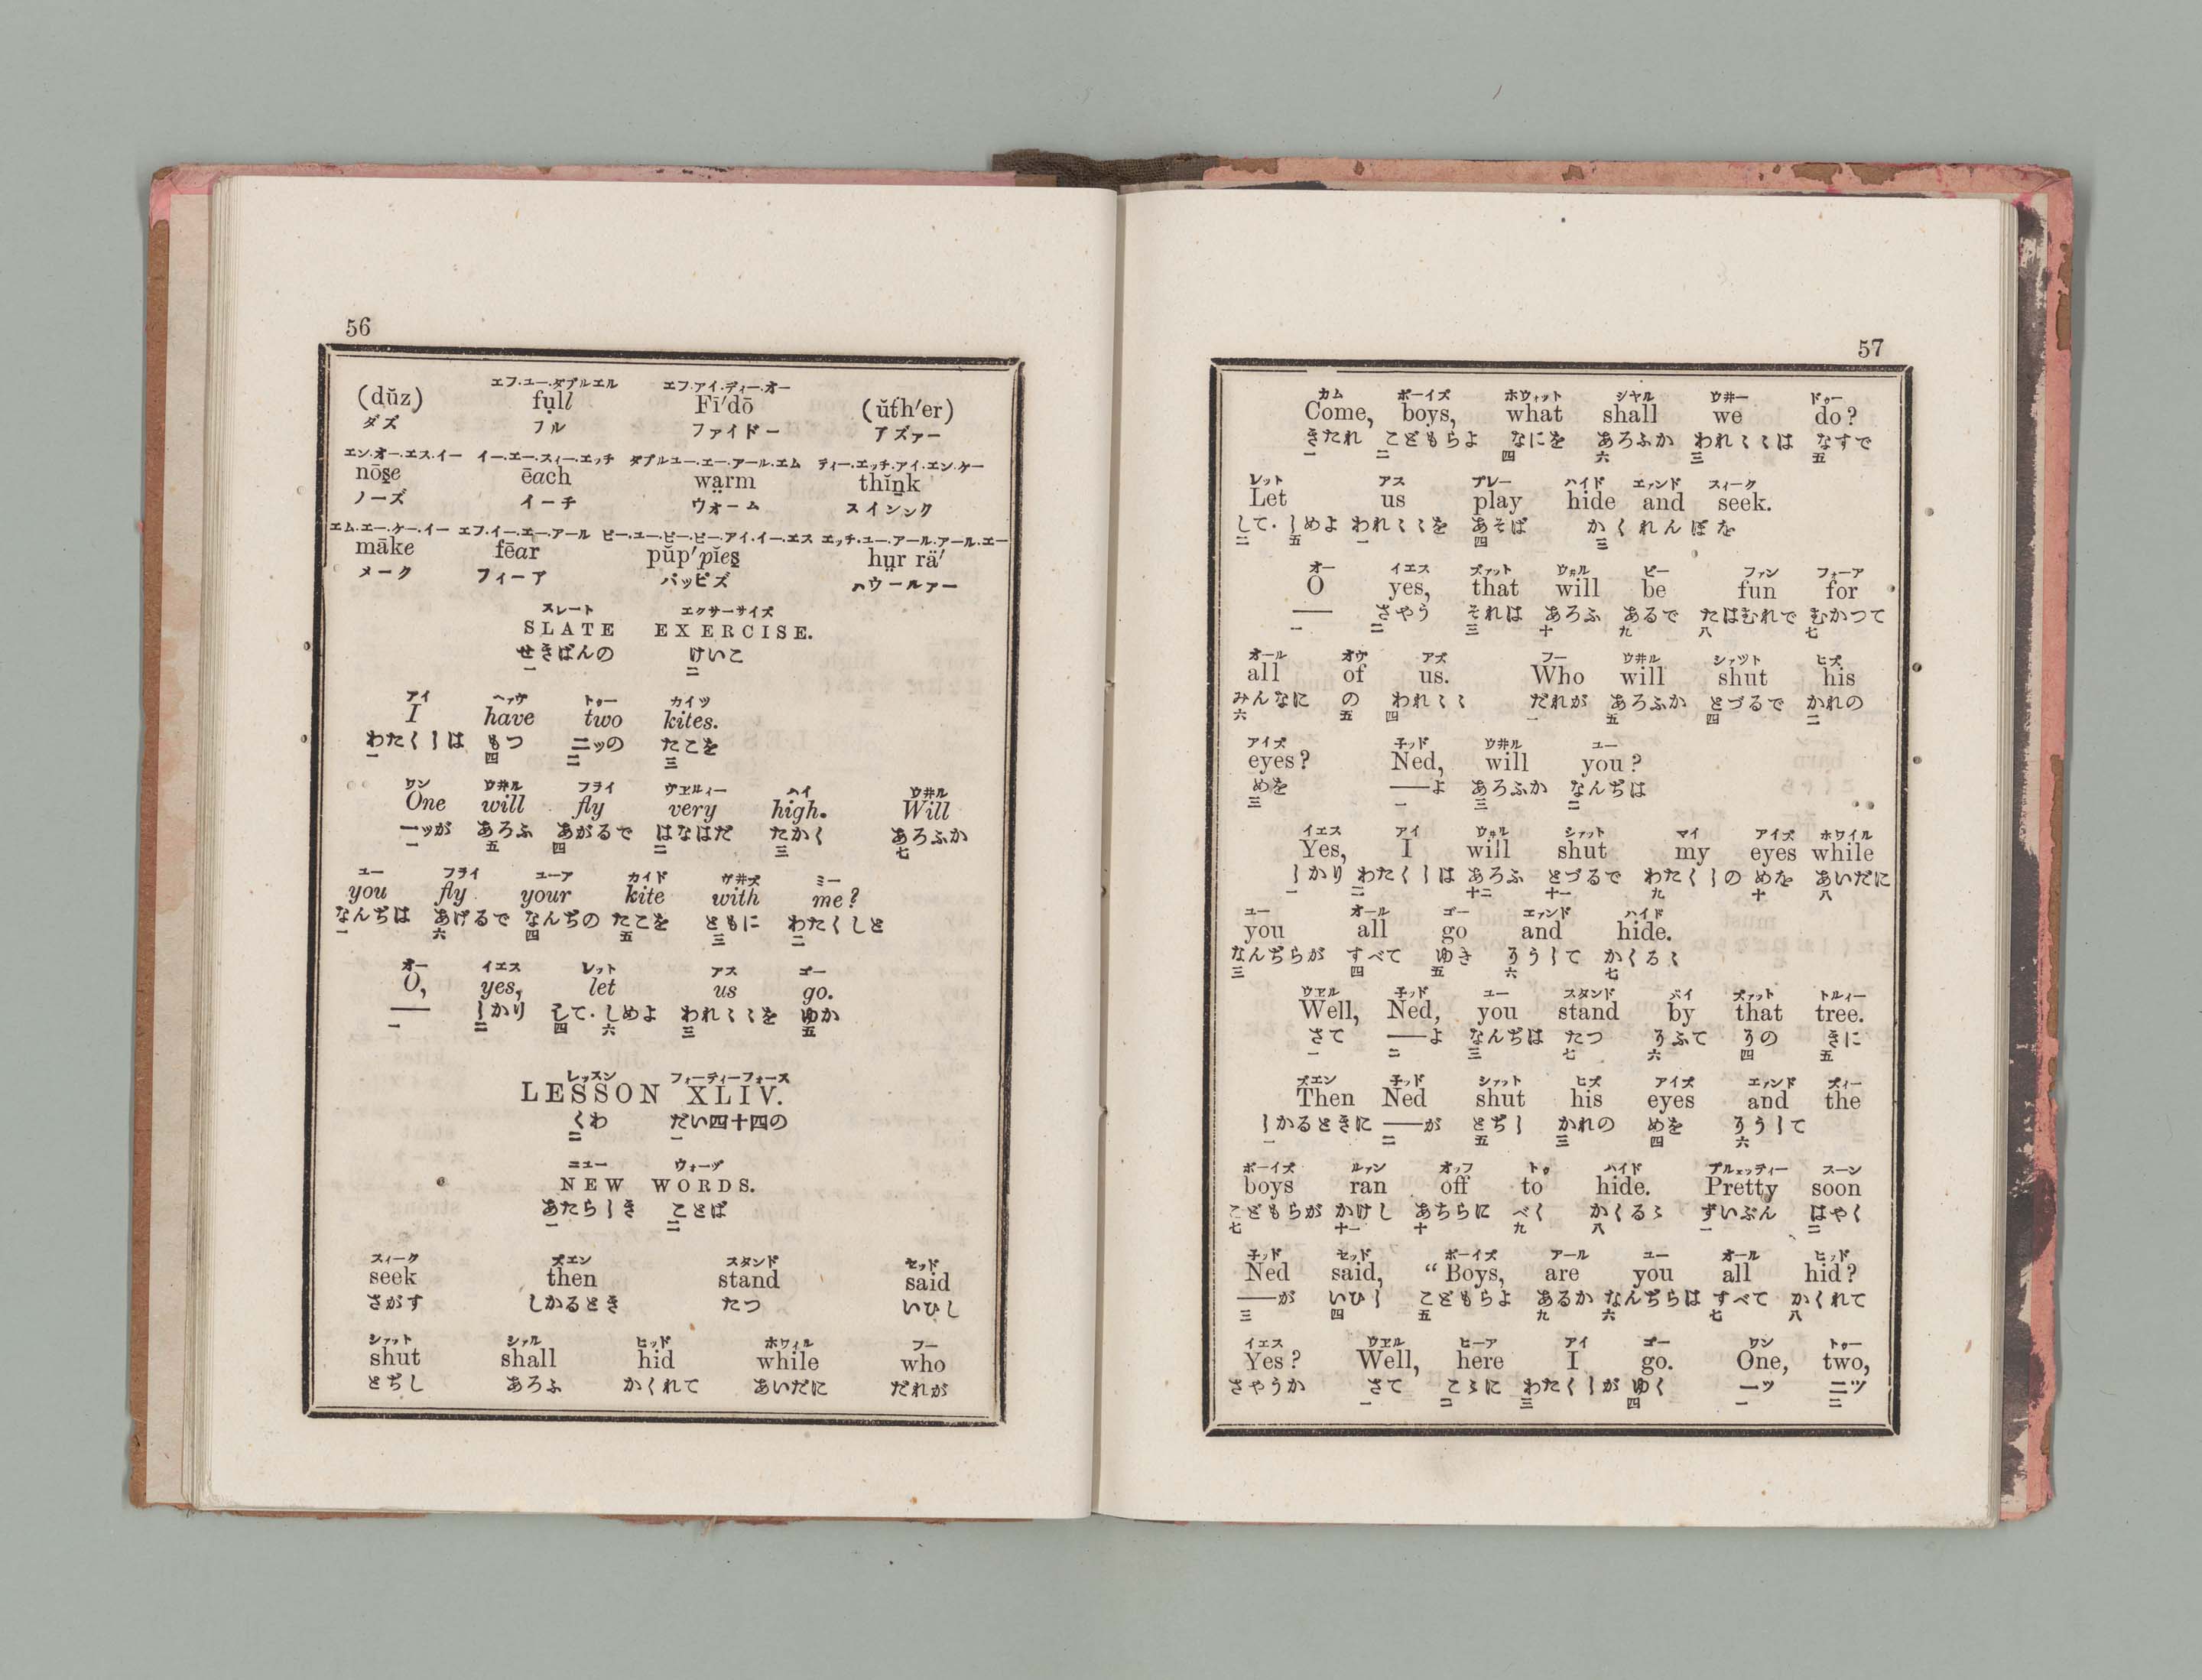 56
エフ.ユー.ダブルエル エフ.アイ.ディー.オー
(dŭz) fu̦ll Fī′dō (ŭth′er)
ダズ フル ファイドー アズァー
エン.オー.エス.イー イー.エー.スィー.エッチ ダブルユー.エー.アール.エム ティー.エッチ.アイ.エン.ケー
nōs̱e ēach wa̤rm thĭṉk
ノーズ イーチ ウォーム スインンク
エム.エー.ケー.イー エフ.イー.エー.アール ピー.ユー.ピー.ピー.アイ.イー.エス エッチ.ユー.アール.アール.エー
māke fēar pŭp′pĭes̱ hṳr rä′
メーク フィーア パッピズ ハウールァー
スレート エクサーサイズ
SLATE EXERCISE.
せきばんの けいこ
一 二
アイ ヘァヴ トゥー カイツ
I have two kites.
わたくしは もつ 二ッの たこを
一 四 二 三
ワン ウ井ル フライ ヴエルィー ハイ ウ井ル
One will fly very high. Will
一ッが あろふ あがるで はなはだ たかく あろふか
一 五 四 二 三 七
ユー フライ ユーア カイド ウ井ズ ミー
you fly your kite with me?
なんぢは あげるで なんぢの たこを ともに わたくしと
一 六 四 五 三 二
オー イエス レット アス ゴー
O, yes, let us go.
── しかり して.しめよ われ〻〻を ゆか
一 二 四 六 三 五
レッスン フォーティーフォース
LESSON XLIV.
くわ だい四十四の
二 一
ニュー ウォーヅ
NEW WORDS.
あたらしき ことば
一 二
スィーク ズエン スタンド セッド
seek then stand said
さがす しかるとき たつ いひし
シァット シァル ヒッド ホワィル フー
shut shall hid while who
とぢし あろふ かくれて あいだに だれが
57
カム ボーイズ ホウィット シヤル ウ井ー ドゥー
Come, boys, what shall we do?
きたれ こどもらよ なにを あろふか われ〻〻は なすで
一 二 四 六 三 五
レット アス プレー ハイド エァンド スィーク
Let us play hide and seek.
して.しめよ われ〻〻を あそば かくれんぼを
二 五 一 四 三
オー イエス ズァット ウ井ル ビー ファン フォーア
O yes, that will be fun for
── さやう それは あろふ あるで たはむれで むかつて
一 二 三 十 九 八 七
オール オヴ アズ フー ウ井ル シァット ヒズ
all of us. Who will shut his
みんなに の われ〻〻 だれが あろふか とづるで かれの
六 五 四 一 五 四 二
アイズ 子ッド ウ井ル ユー
eyes? Ned, will you?
めを ──よ あろふか なんぢは
三 一 三 二
イエス アイ ウ井ル シァット マイ アイズ ホワイル
Yes, I will shut my eyes while
しかり わたくしは あろふ とづるで わたくしの めを あいだに
一 二 十二 十一 九 十 八
ユー オール ゴー エァンド ハイド
you all go and hide.
なんぢらが すべて ゆき そうして かくるゝ
三 四 五 六 七
ウエル 子ッド ユー スタンド バイ ズァット トルィー
Well, Ned, you stand by that tree.
さて ──よ なんぢは たつ そふて その きに
一 二 三 七 六 四 五
ズエン 子ッド シァット ヒズ アイズ エァンド ズィー
Then Ned shut his eyes and the
しかるときに ──が とぢし かれの めを そうして
一 二 五 三 四 六
ボーイズ ルァン オッフ トゥ ハイド プルェッティー スーン
boys ran off to hide. Pretty soon
こどもらが かけし あちらに べく かくるゝ ずいぶん はやく
七 十一 十 九 八 一 二
子ッド セッド ボーイズ アール ユー オール ヒッド
Ned said, “Boys, are you all hid?
──が いひし こどもらよ あるか なんぢらは すべて かくれて
三 四 五 九 六 七 八
イエス ウエル ヒーア アイ ゴー ワン トゥー
Yes? Well, here I go. One, two,
さやうか さて こゝに わたくしが ゆく 一ツ 二ツ
一 二 三 四 一 二